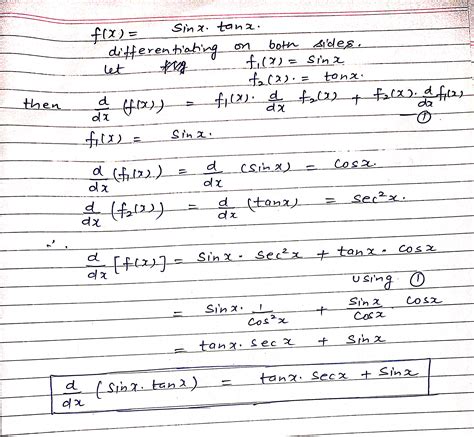 f(x) = Sinx. tanx.
differentiating on both sides.
let f₁(x) = Sinx
f₂(x). = tanx.
then d/dx (f(x)) = f₁(x). d/dx f₂(x) + f₂(x). d/dx f₁(x)
①
f₁(x) = Sinx.
d/dx (f₁(x)) = d/dx (Sinx) = Cosx.
d/dx (f₂(x)) = d/dx (tanx) = Sec²x.
∴
d/dx [f(x)] = Sinx. Sec²x + tanx. Cosx
using ①
= Sinx. 1/Cos²x + Sinx/Cosx Cosx
= tanx. Sec x + Sinx
d/dx (Sinx. tanx) = tanx. Secx + Sinx